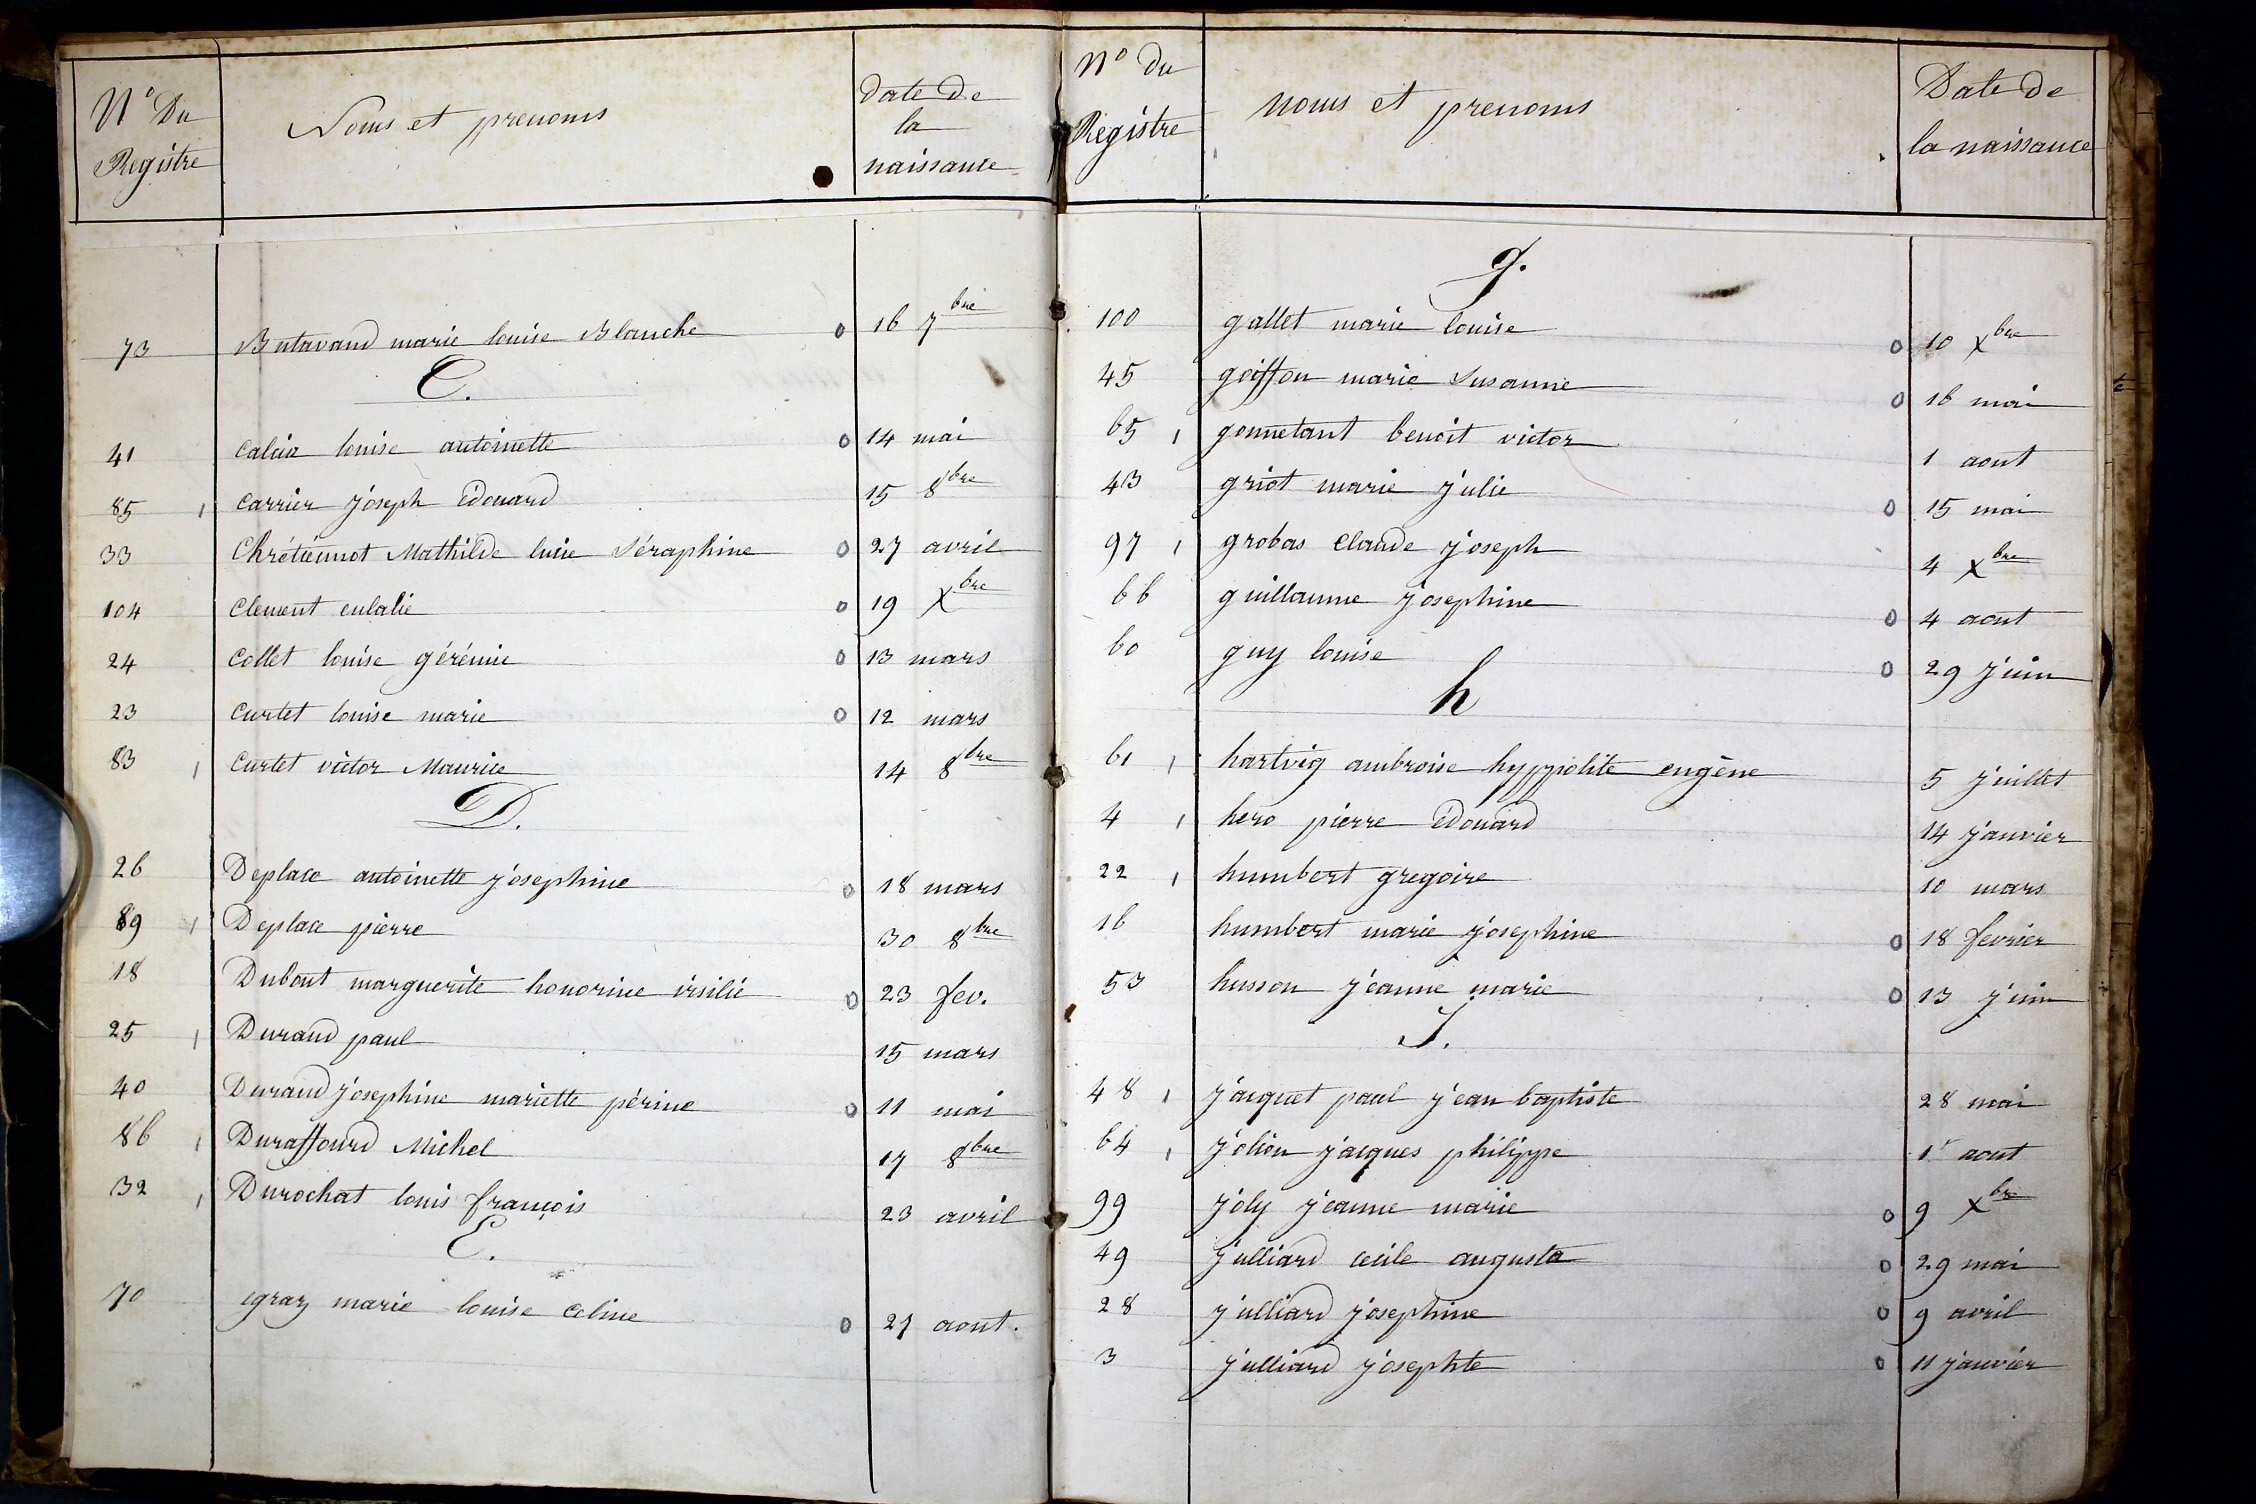 N° Du Registre
Noms et prenoms
date de la naissance
73 Butavand marie louise Blanche o 16 7bre
C.
41 calcia louise antoinette o 14 mai
85 ı carrier joseph édouard 15 8bre
33 Chrétiennot Mathilde lucie Séraphine o 27 avril
104 clement eulalie o 19 Xbre
24 collet louise gérémie o 13 mars
23 curtet louise marie o 12 mars
83 ı curtet victor Maurice 14 8bre
D.
26 Deplace antoinette josephine o 18 mars
89 ı Deplace pierre 30 8bre
18 Dubout marguerite honorine irsilie o 23 fev.
25 ı Durand paul 15 mars
40 Durand josephine mariette périne o 11 mai
86 ı Duraffourd Michel 17 8bre
32 ı Durochat louis françois 23 avril
E.
70 egraz marie louise celine o 27 aout.
N° du Registre
noms et prenoms
Date de la naissance
g.
100 gallet marie louise o 10 Xbre
45 goiffon marie Susanne o 16 mai
65 ı gonnetant benoit victor 1 aout
43 griot marie julie o 15 mai
97 ı grobas claude joseph 4 Xbre
66 guillaume josephine o 4 aout
60 guy louise o 29 juin
h
61 ı hartvig ambroise hyppolite eugène 5 juillet
4 ı hero pierre édouard 14 janvier
22 ı humbert gregoire 10 mars
16 humbert marie josephine o 18 fevrier
53 husson jeanne marie o 13 juin
J.
48 ı jacquet paul jean baptiste 28 mai
64 ı jolion jacques philippe 1r aout
99 joly jeanne marie o 9 Xbre
49 julliard cecile augusta o 29 mai
28 julliard josephine o 9 avril
3 julliard josephte o 11 janvier